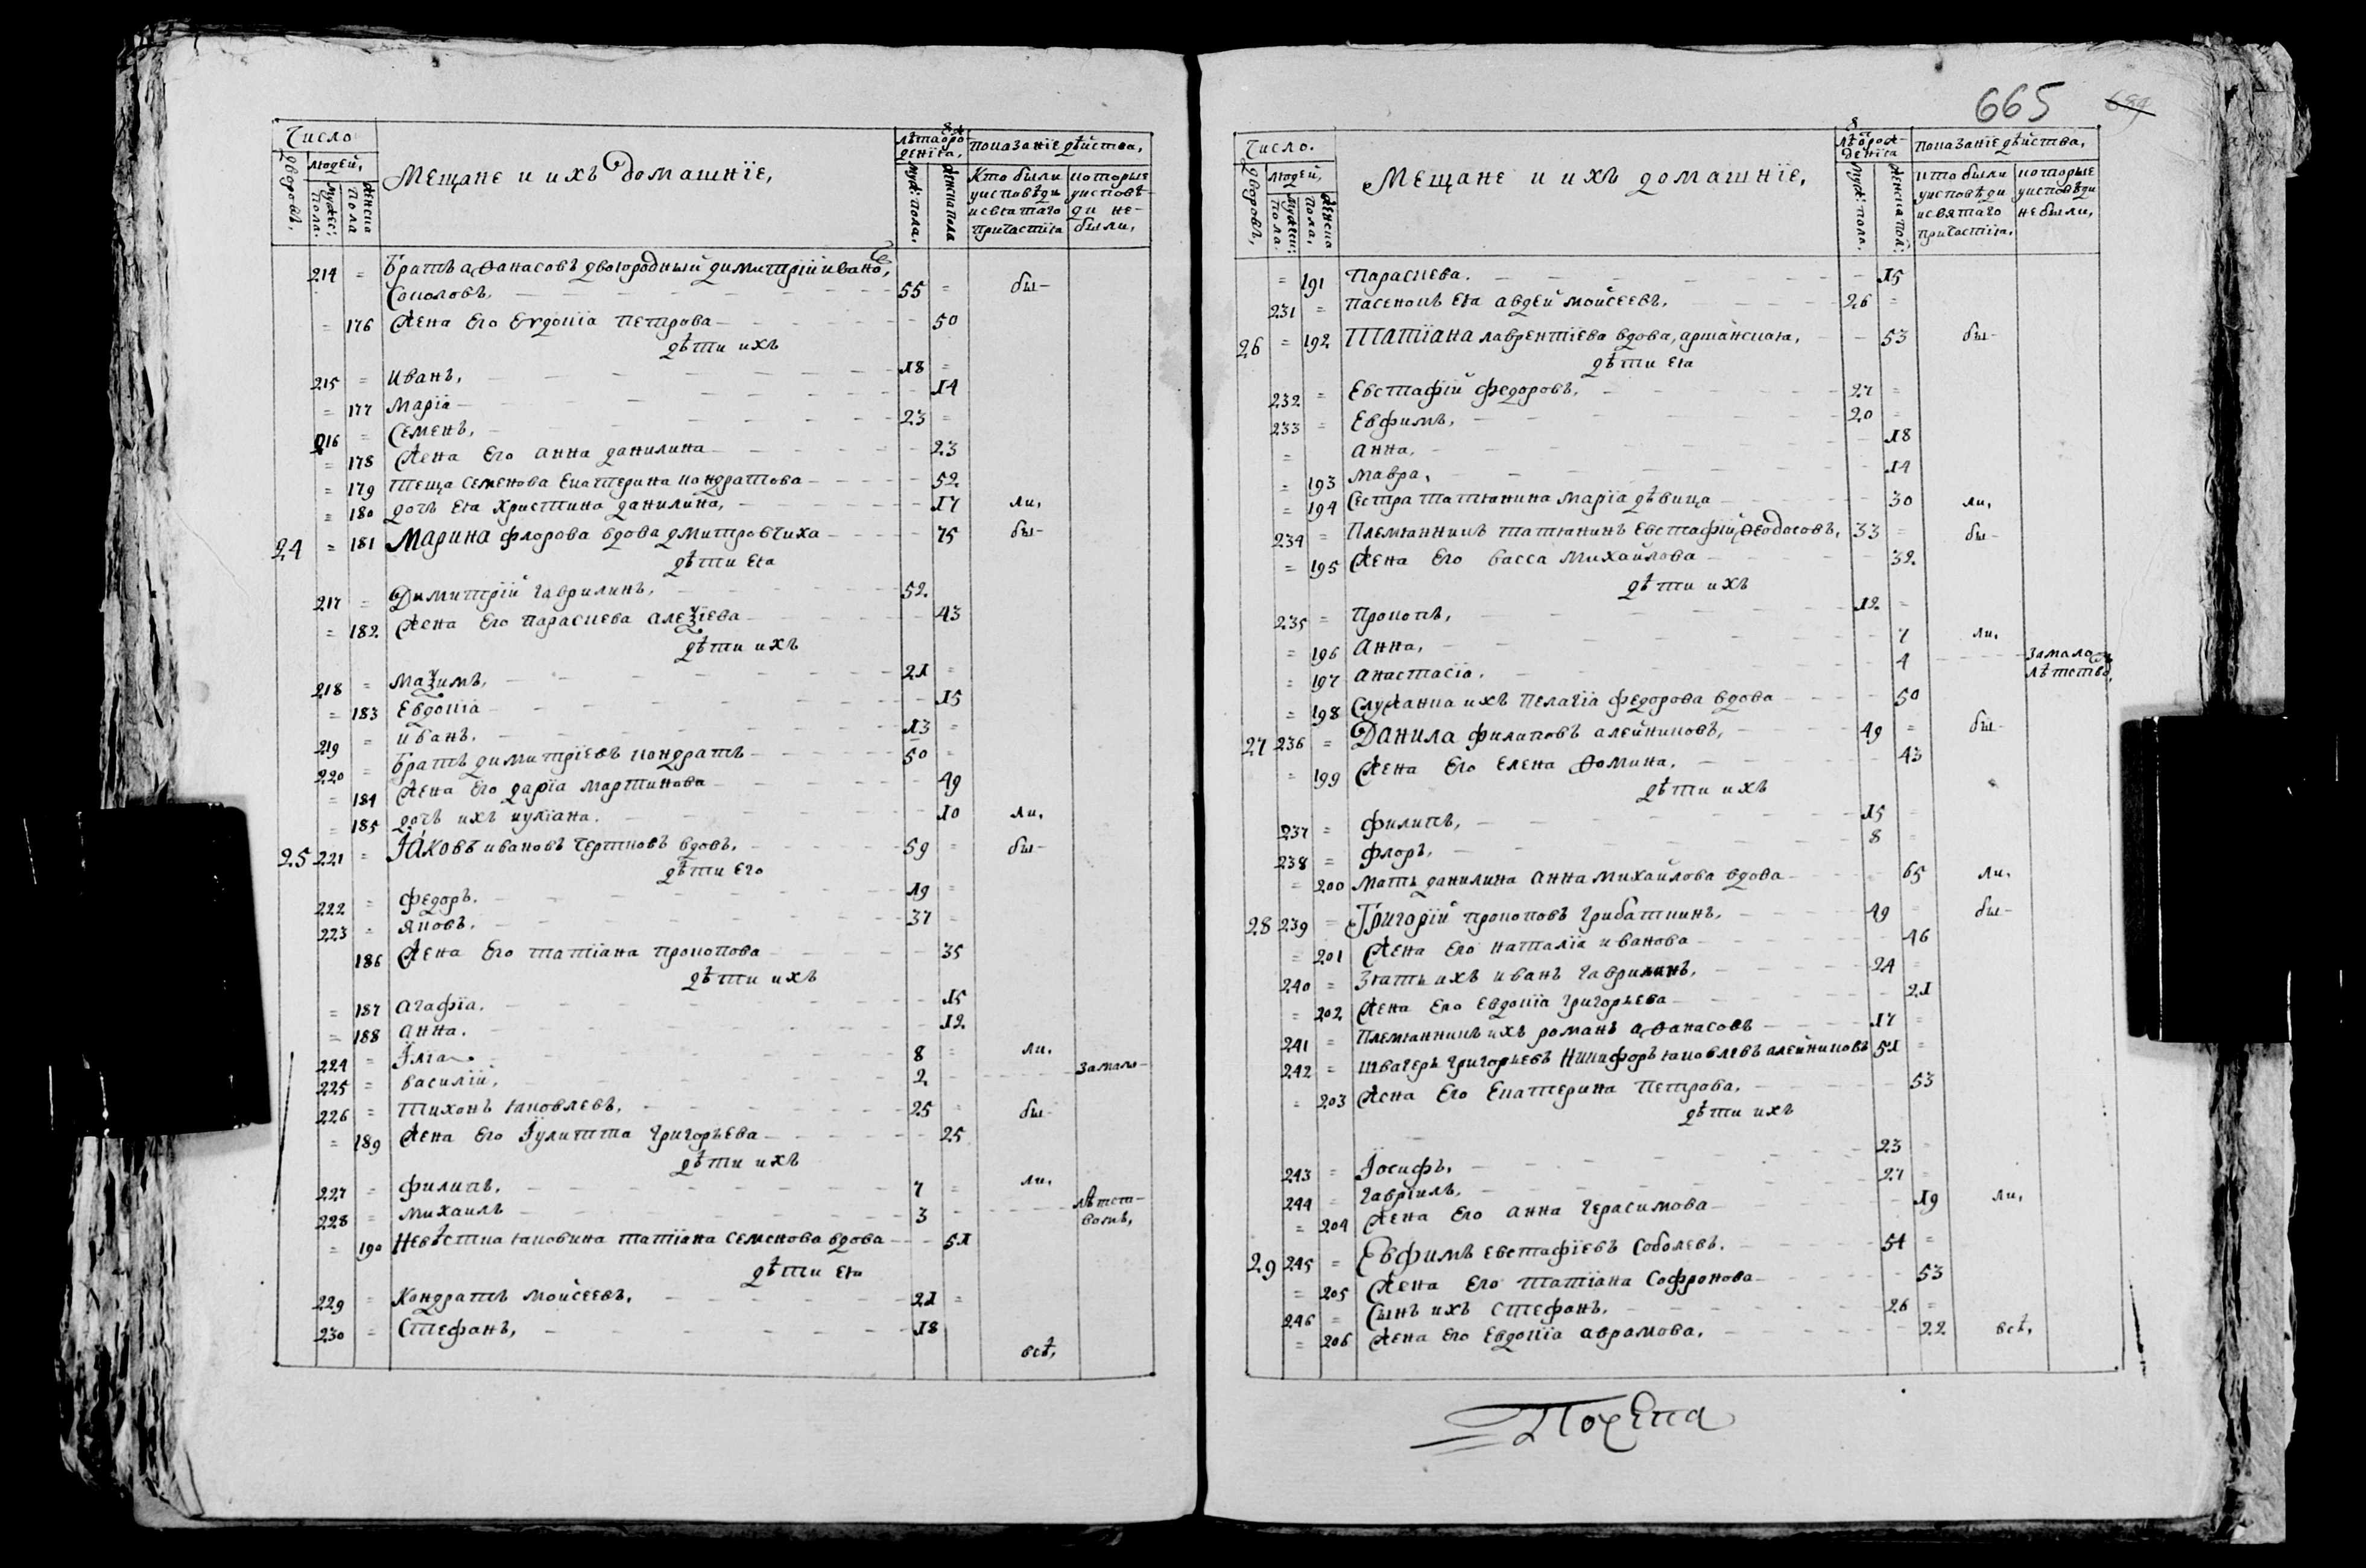 Число
дворовъ,
людей,
мужес: пола.
женска пола
Мещане и ихъ домашнїе,
лѣта ѿ рожденїѧ,
муж: пола,
женска пола
показанїе дѣйства,
Кто были
уисповѣди
исвѧтаго
причастїѧ
которые
уисповѣ-
ди не-
были,
214 = Братъ аѳанасовъ двоюродный димитрїй ивановъ,
Соколовъ, 55 = бы-
= 176 Жена Его Еѵдокїа петрова 50
дѣти ихъ
215 = Иванъ, 18 =
= 177 Марїа 14
216 = Семенъ, 23 =
= 178 Жена Его анна данилина 23
= 179 теща семенова Екатерина кондратова 52
= 180 дочь Еѧ христина данилина, 17 ли,
24 = 181 Марина флорова вдова дмитровчиха 75 бы-
дѣти Еѧ
217 = Димитрїй гаврилинъ, 52
= 182 Жена Его параскева алеѯїева 43
дѣти ихъ
218 = маѯимъ, 21 =
= 183 Евдокїа 15
219 = иванъ, 13 =
220 = братъ димитрїевъ кондратъ 50 =
= 184 Жена Его дарїа мартинова 49
= 185 дочь ихъ иулїана. 10 ли,
25 221 = Їаковъ ивановъ чертковъ вдовъ, 59 = бы-
дѣти Его
222 = федоръ. 19 =
223 = яковъ. 37 =
186 Жена Его татїана прокопова 35
дѣти ихъ
= 187 агафїа. 15
= 188 анна. 12
224 = Їлїа 8 = ли,
225 = василїй, 2 замало-
226 = тихонъ ѧковлевъ, 25 = бы-
= 189 Жена Его Їулитта григорьева 25
дѣти ихъ
227 = филипъ, 7 = ли,
228 = михаилъ 3 лѣтст-
вомъ,
= 190 Невѣстка ѧковкина татїана семенова вдова 51
дѣти Еѧ
229 = Кондратъ моисеевъ, 21 =
230 = Стефанъ, 18
всѣ,
665
Число.
дворовъ,
людей,
мужеск: пола.
женска пола,
Мещане и ихъ домашнїе,
лѣ ѿ рож-
денїѧ
муж: пола.
женска пол:
показанїе дѣйства,
кто были
уисповѣди
исвѧтаго
причастїѧ,
которые
уисповѣди
небыли,
= 191 параскева. 15
231 = пасенокъ Еѧ авдей моисеевъ, 26 =
26 = 192 Татїана лаврентїева вдова, 53 бы-
дѣти Еѧ
232 = Евстафїй федоровъ, 27 =
233 = Евфимъ, 20 =
= анна, 18
= 193 мавра, 14
= 194 Сестра татїанина марїа дѣвица 30 ли,
234 = Племѧнникъ татїанинъ Евстафїй Ѳеодосовъ, 33 = бы-
= 195 Жена Его васса михайлова 32
дѣти ихъ
235 = прокопъ, 12 =
= 196 анна, 7 ли,
= 197 анастасїа, 4 замало-
лѣтствомъ,
= 198 Служанка ихъ пелагїа федорова вдова 50
27 236 = Данила филиповъ алейниковъ, 49 = бы-
= 199 Жена Его Елена Ѳомина, 43
дѣти ихъ
237 = филипъ, 15 =
238 = флоръ, 8 =
= 200 мать данилина анна михайлова вдова 65 ли,
28 239 = Григорїй прокоповъ грибаткинъ, 49 = бы-
= 201 Жена Его наталїа иванова 46
240 = Зѧть ихъ иванъ гаврилинъ, 24 =
= 202 Жена Его Евдокїа григорьева 21
241 = племѧнникъ ихъ романъ аѳанасовъ 17 =
242 = швагеръ григорьевъ никифоръ ѧковлевъ алейниковъ 51 =
= 203 Жена Его Екатерина петрова, 53
дѣти ихъ
243 = Їосифъ, 23 =
244 = гаврїилъ, 27 =
= 204 Жена Его анна герасимова 19 ли,
29 245 = Евфимъ евстафїевъ соболевъ. 54 =
= 205 Жена Его татїана Софронова 53
246 = Сынъ ихъ Стефанъ, 26 =
= 206 Жена Его Евдокїа аврамова, 22 всѣ,